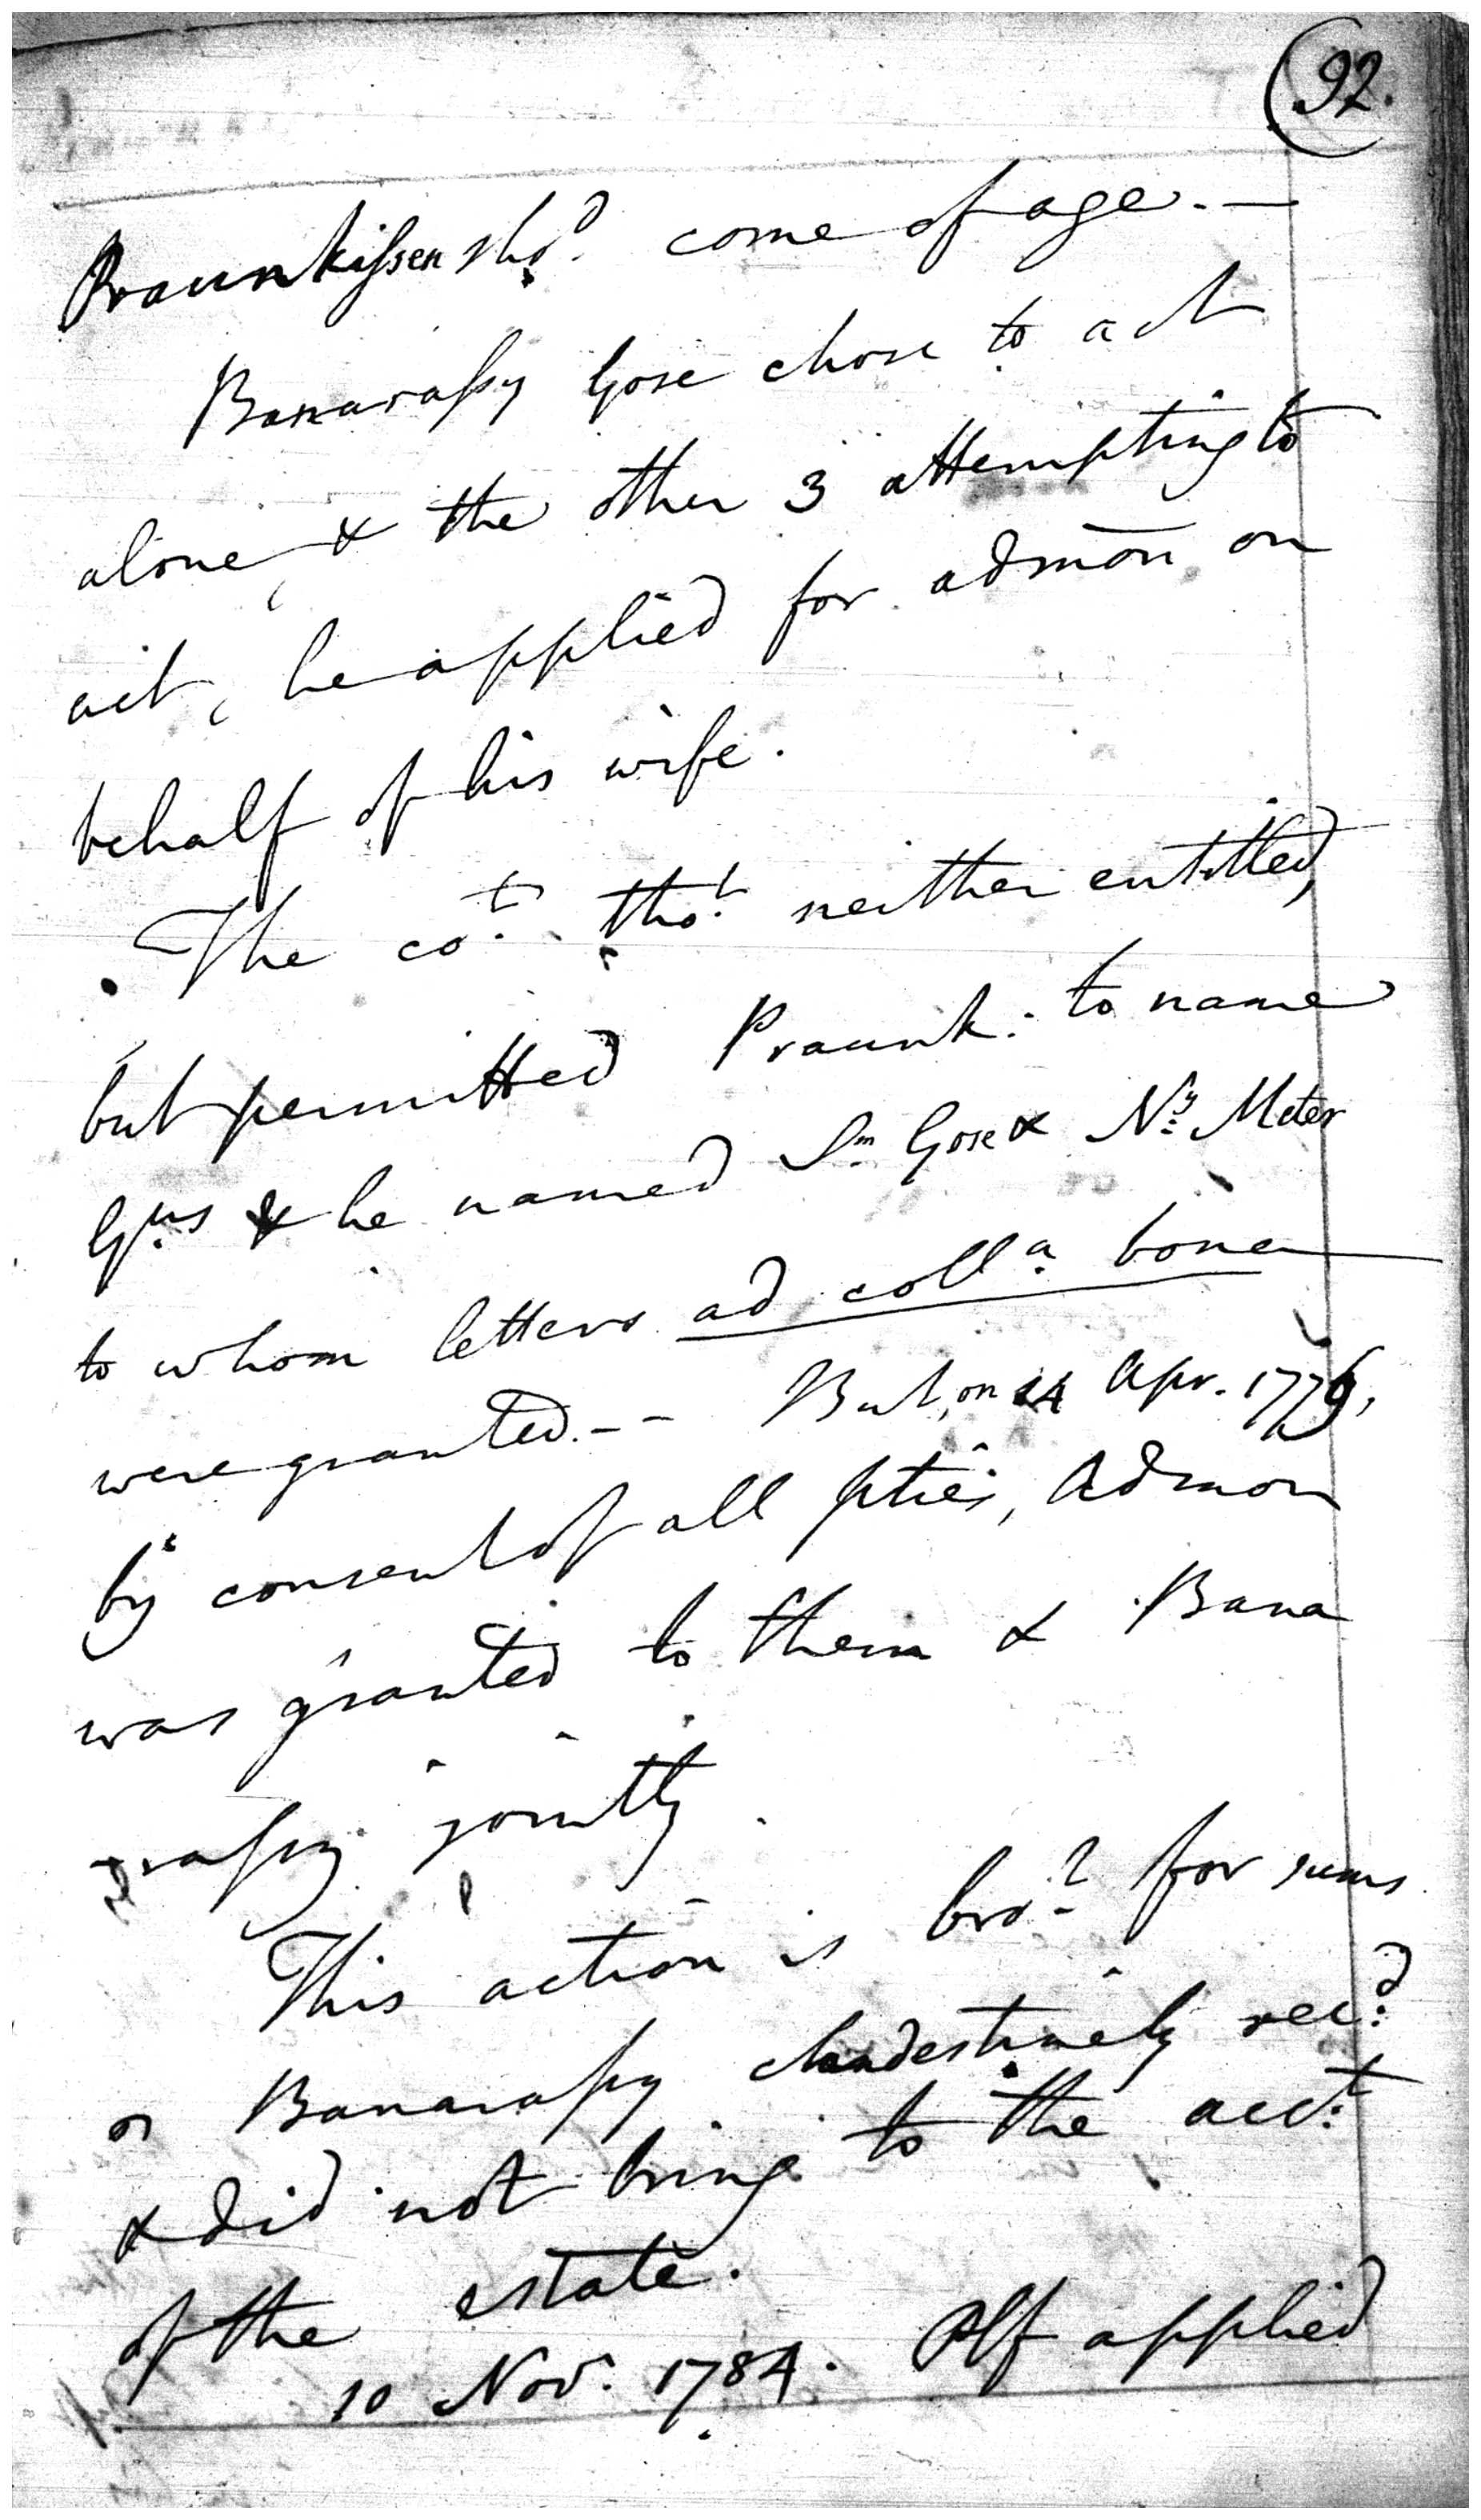 (92.
Praunkissen sho.d come of age. —
Banarassy Gose chose to act
alone, & the other 3 attempting to
act, he applied for admōn on
behalf of his wife.
The co.t tho.t neither entitled,
but permitted Praunk: to name
G.ns & he named Sm Gose & N.y Meter
to whom letters ad coll.a bona
were granted. - - But, on 24 Apr. 1776,
by consent of all pties, Admon
was granted to them & Bana
-rassy jointly.
This action is bro.t for sums
Banarassy clandestinely rec:d
& did not bring to the acc:t
of the estate.
10 Nov. 1784. Plf applied